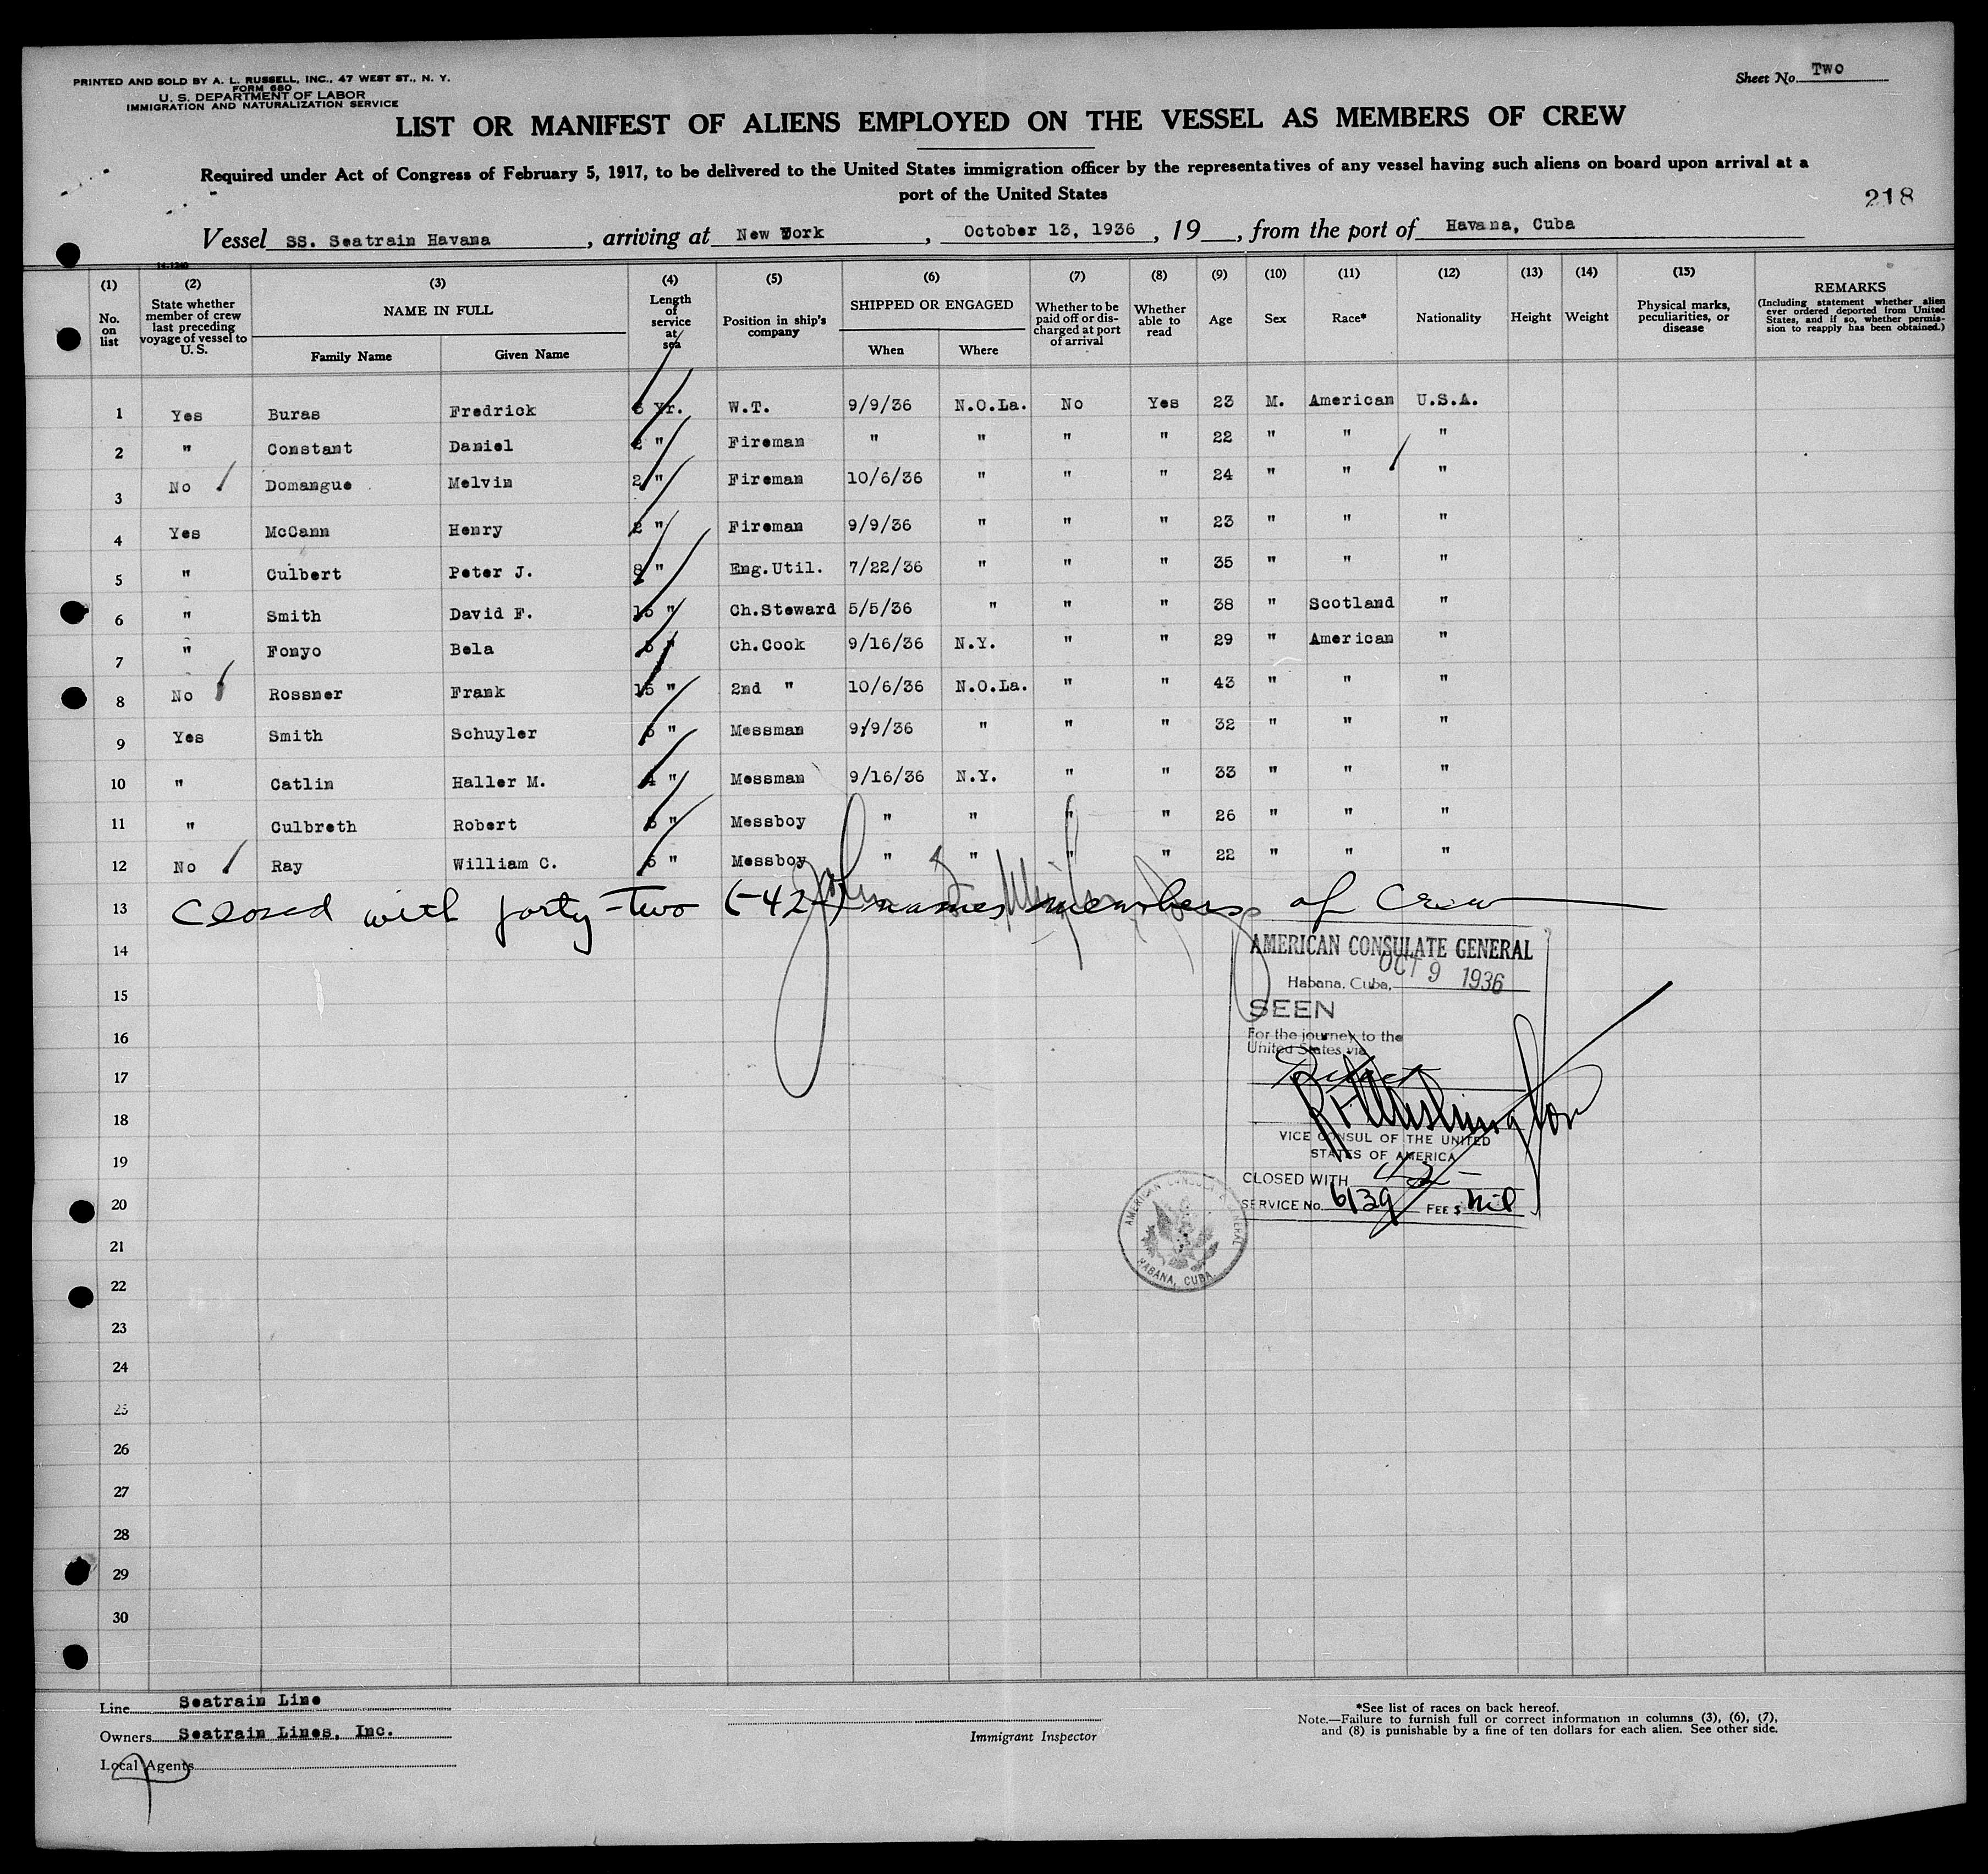 PRINTED AND SOLD BY A. L. RUSSELL, INC., 47 WEST ST., N. Y.
FORM 680
U. S. DEPARTMENT OF LABOR
IMMIGRATION AND NATURALIZATION SERVICE
Sheet No. Two
LIST OR MANIFEST OF ALIENS EMPLOYED ON THE VESSEL AS MEMBERS OF CREW
Required under Act of Congress of February 5, 1917, to be delivered to the United States immigration officer by the representatives of any vessel having such aliens on board upon arrival at a
port of the United States
218
Vessel SS. Seatrain Havana, arriving at New York, October 13, 1936, 19__, from the port of Havana, Cuba
(1) No. on list
(2) State whether member of crew last preceding voyage of vessel to U. S.
(3) NAME IN FULL Family Name Given Name
(4) Length of service at sea
(5) Position in ship's company
(6) SHIPPED OR ENGAGED When Where
(7) Whether to be paid off or discharged at port of arrival
(8) Whether able to read
(9) Age
(10) Sex
(11) Race*
(12) Nationality
(13) Height
(14) Weight
(15) Physical marks, peculiarities, or disease
REMARKS (Including statement whether alien ever ordered deported from United States, and if so, whether permission to reapply has been obtained.)
1 Yes Buras Fredrick Yr. W.T. 9/9/36 N.O.La. No Yes 23 M. American U.S.A.
2 " Constant Daniel 2 " Fireman " " " " 22 " " "
3 No Domangue Melvin 2 " Fireman 10/6/36 " " " 24 " " "
4 Yes McCann Henry 2 " Fireman 9/9/36 " " " 23 " " "
5 " Culbert Peter J. 8 " Eng.Util. 7/22/36 " " " 35 " " "
6 " Smith David F. 15 " Ch.Steward 5/5/36 " " " 38 " Scotland "
7 " Fonyo Bela " Ch.Cook 9/16/36 N.Y. " " 29 " American "
8 No Rossner Frank 15 " 2nd " 10/6/36 N.O.La. " " 43 " " "
9 Yes Smith Schuyler " Messman 9/9/36 " " " 32 " " "
10 " Catlin Haller M. 4 " Messman 9/16/36 N.Y. " " 33 " " "
11 " Culbreth Robert " Messboy " " " " 26 " " "
12 No Ray William C. " Messboy " " " " 22 " " "
13 Closed with forty-two (-42-) names members of Crew
14
15
16
17
18
19
20
21
22
23
24
25
26
27
28
29
30
AMERICAN CONSULATE GENERAL
OCT 9 1936
Habana, Cuba,
SEEN
For the journey to the
United States via
VICE CONSUL OF THE UNITED
STATES OF AMERICA
CLOSED WITH 42-
SERVICE No. 6139 FEE $ Nil
AMERICAN CONSULATE GENERAL
HABANA, CUBA.
Line Seatrain Line
Owners Seatrain Lines, Inc.
Local Agents
Immigrant Inspector
*See list of races on back hereof.
Note.—Failure to furnish full or correct information in columns (3), (6), (7),
and (8) is punishable by a fine of ten dollars for each alien. See other side.